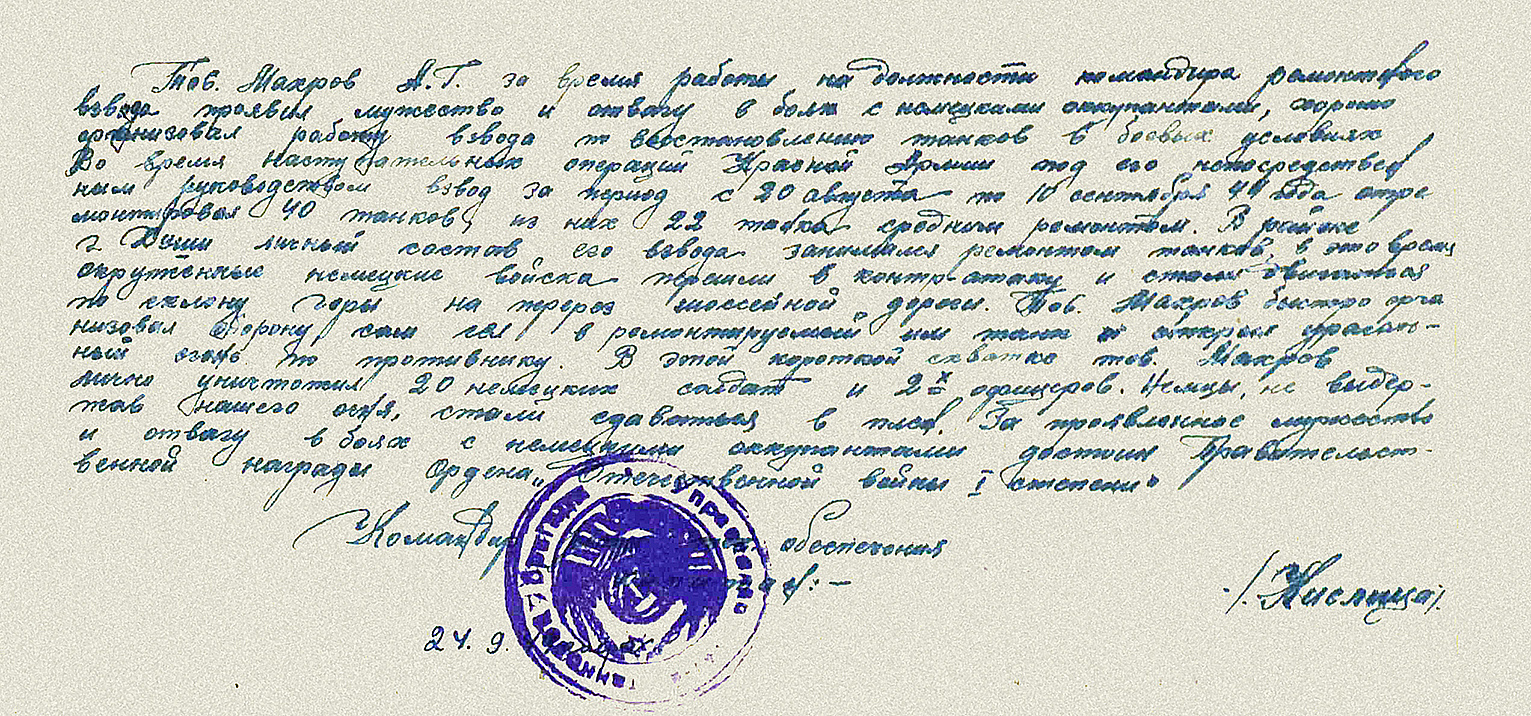 Тов. Махров А.Г. за время работы на должности командира ремонтного
взвода проявил мужество и отвагу в боях с немецкими оккупантами, хорошо
организовал работу взвода по восстановлению танков в боевых условиях
Во время наступательных операций Красной Армии под его непосредствен
ным руководством взвод за период с 20 августа по 10 сентября 44 года отре
монтировал 40 танков, из них 22 танка средним ремонтом. В районе
г. Хуши личный состав его взвода занимался ремонтом танков, в это время
окружённые немецкие войска перешли в контр-атаку и стали двигаться
по склону горы на перерез шоссейной дороги. Тов. Махров быстро орга
низовал оборону, сам сел в ремонтируемый им танк и открыл ураган-
ный огонь по противнику. В этой короткой схватке тов. Махров
лично уничтожил 20 немецких солдат и 2х офицеров. Немцы, не выдер-
жав нашего огня, стали сдаваться в плен. За проявленное мужество
и отвагу в боях с немецкими оккупантами достоин Правительст-
венной награды Ордена „Отечественной войны I степени"
Командир обеспечения
/Кислица/
24. 9.
Управление бригады